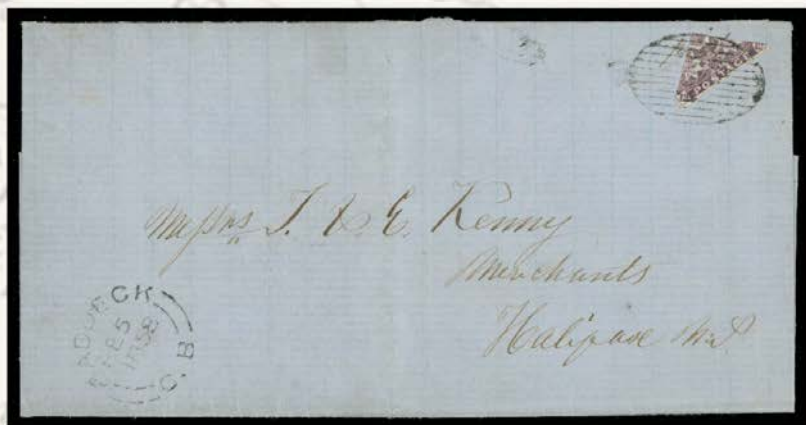 POSTAGE
Messrs T. & E. Kenny
Merchants
Halifax N.S
BADDECK
5
1858
C. B